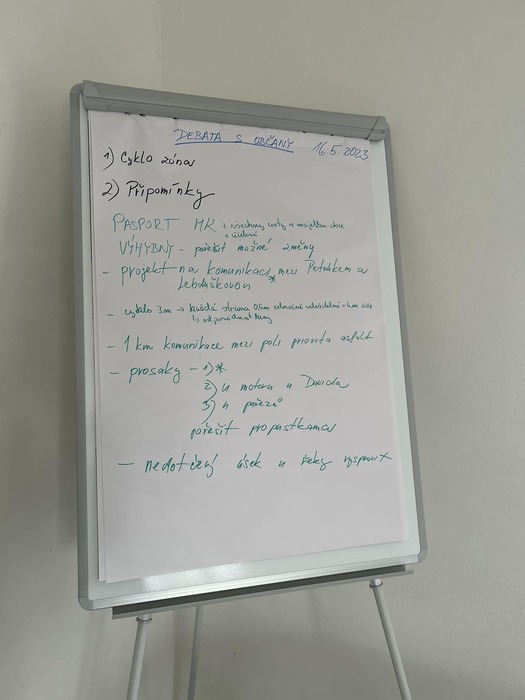 DEBATA S OBČANY 16.5.2023
1) Cyklo zóna
2) Připomínky
PASPORT MK + všechny cesty v majetku obce
+ účelové
VÝHYBNY - pořešit možné změny
- projekt na komunikaci * mezi Petříkem a
- cyklo 3m → každá strana 0,5m
- 1 km komunikace mezi poli priorita asfalt
- prosaky - 1) *
2) u motoru u Davida
3) u
pořešit propustkama
- nedotčený úsek u řeky vyspravit